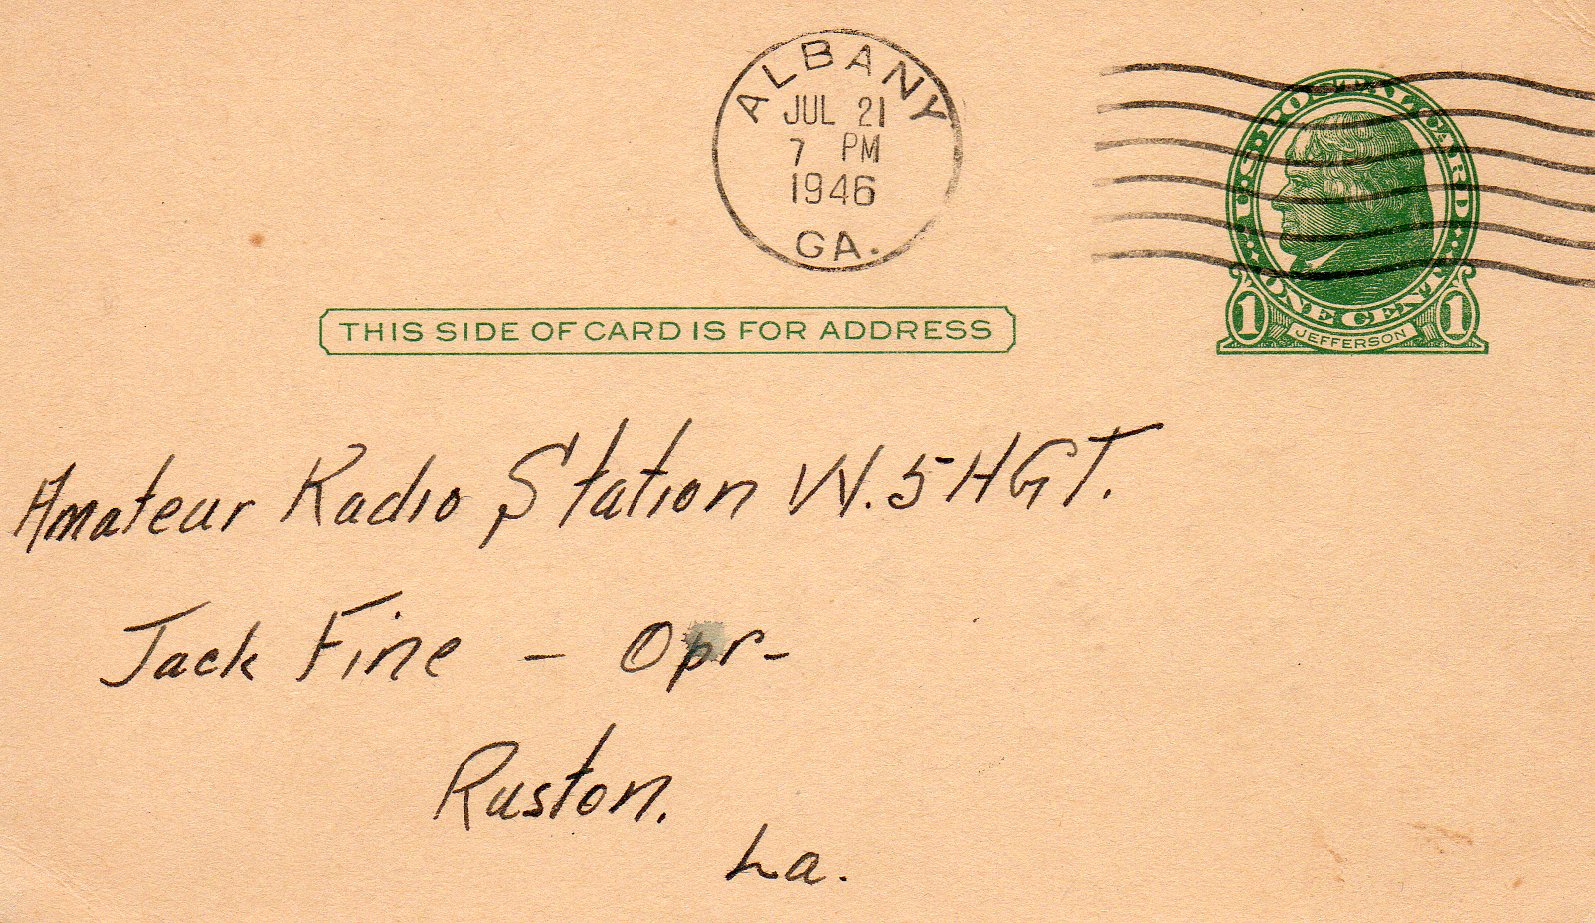 ALBANY
JUL 21
7 PM
1946
GA.
U.S. POSTAL CARD
ONE CENT
1 JEFFERSON 1
THIS SIDE OF CARD IS FOR ADDRESS
Amateur Radio Station W.5HGT.
Jack Fine - Opr-
Ruston.
La.